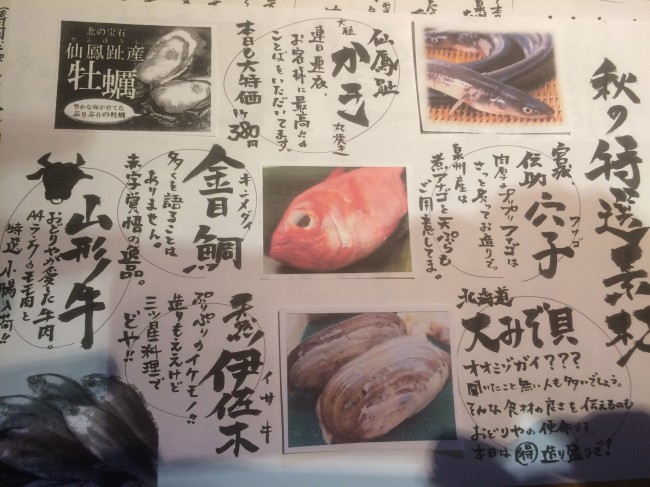 秋の特選素材
宮城、
伝助 穴子
アナゴ
肉厚のプリプリアナゴは
さっと炙ってお造りで。
泉州産は
煮アナゴと天ぷらも
ご用意してます。
北海道
大みぞ貝
オオミゾガイ???
聞いたこと無い人も多いでしょう。
そんな食材の良さを伝えるのも
おどりやの使命です。
本日は 得 造り盛りで!
仙鳳趾
大粒 かき 炙焼き
連日連夜、
お客様に最高だの
ことばをいただいてます。
本日も大特価1ヶ380円
北の宝石
せんぽうし
仙鳳趾産
牡蠣
豊かな海が育てた
ぷりぷりの牡蠣
キンメダイ
金目鯛
多くを語ることは
ありません。
赤字覚悟の逸品。
天然 伊佐木
イサキ
ぷりぷりのイケモノ!!
造りもええけど
三ツ星料理で
どや!!
山形牛
おどりやが愛した牛肉。
A4ランクのモモ肉と
特選
入荷!!